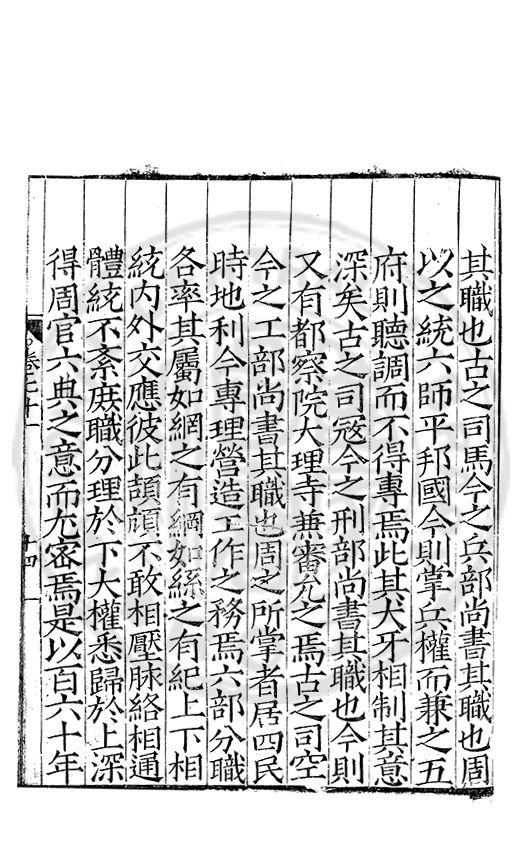 其職也古之司馬今之兵部尚書其職也周
以之統六師平邦國今則掌兵權而兼之五
府則聽調而不得專焉此其犬牙相制其意
深矣古之司宼今之刑部尚書其職也今則
又有都察院大理寺兼審允之焉古之司空
今之工部尚書其職也周之所掌者居四民
時地利今專理營造工作之務焉六部分職
各率其屬如網之有綱如絲之有紀上下相
統内外交應彼此頡頏不敢相壓脉絡相通
體統不紊庻職分理於下大權悉歸於上深
得周官六典之意而尤密焉是以百六十年
卷七十一
十四